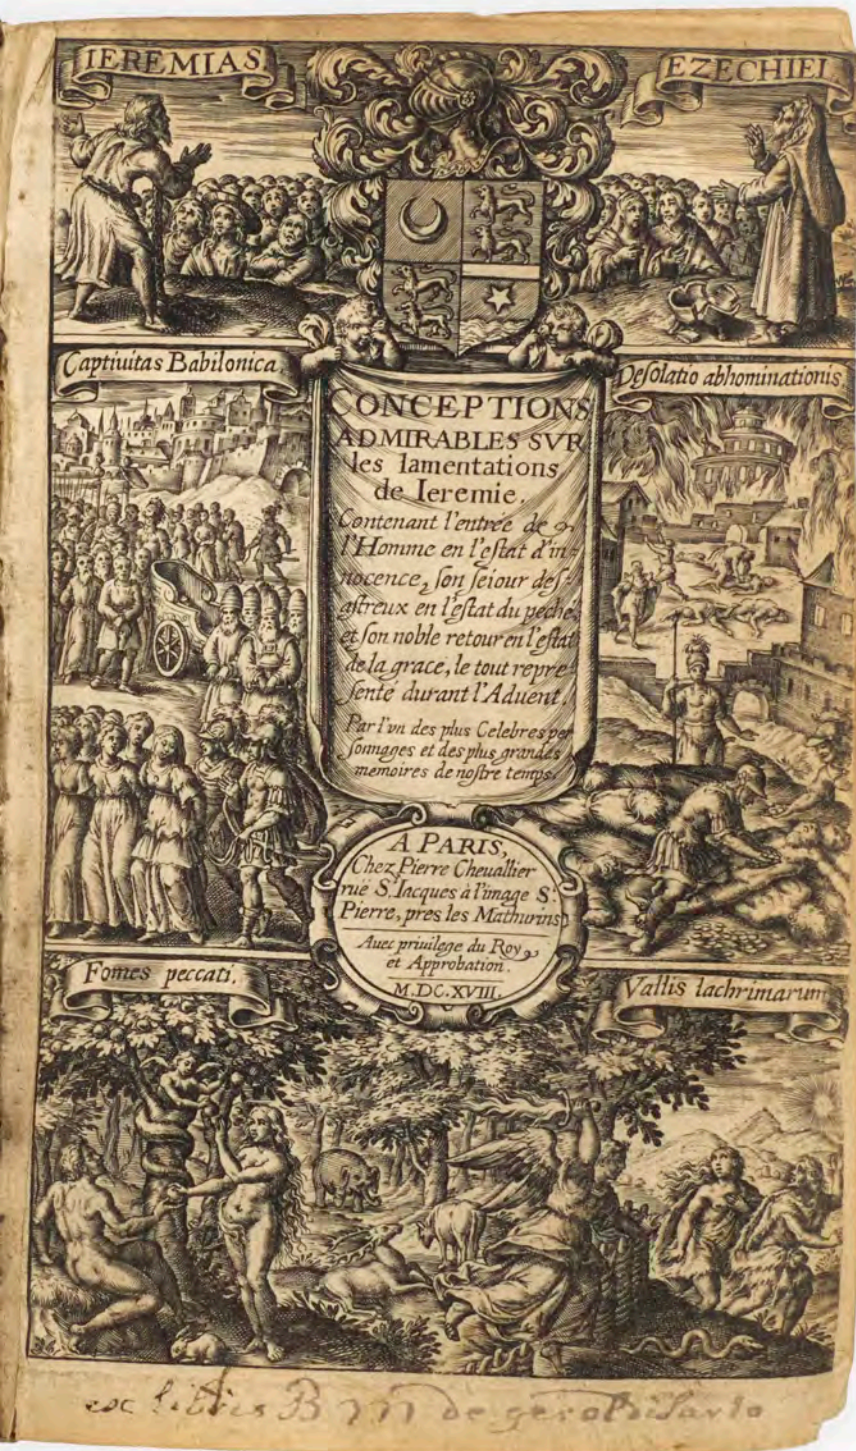 IEREMIAS.
EZECHIEL.
Captiuitas Babilonica.
Desolatio abhominationis.
CONCEPTIONS
ADMIRABLES SVR
les lamentations
de Ieremie.
Contenant l'entrée de
l'Homme en l'estat d'in-
nocence, son seiour des-
astreux en l'estat du peché,
et son noble retour en l'estat
de la grace, le tout repre-
senté durant l'Aduent.
Par l'vn des plus Celebres per
sonnages et des plus grandes
memoires de nostre temps.
A PARIS,
Chez Pierre Cheuallier
rue S. Iacques à l'image St.
Pierre, pres les Mathurins
Auec priuilege du Roy,
et Approbation.
M.DC.XVIII.
Fomes peccati.
Vallis lachrimarum
ex libris B M de